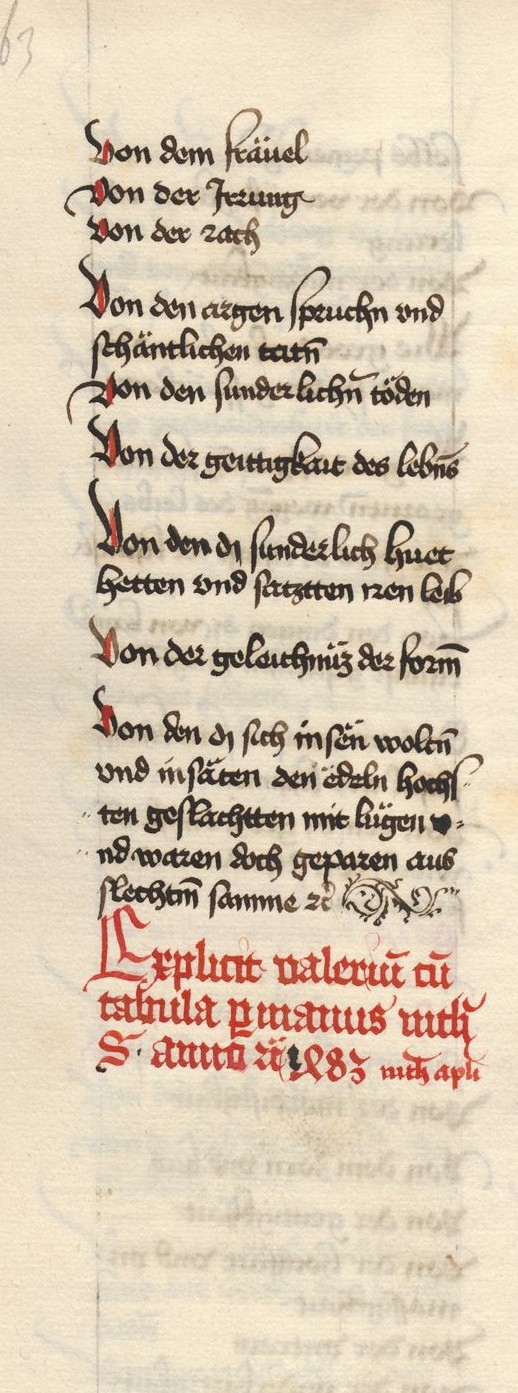 63
Von dem fräuel
Von der Jrrung
Von der rach
Von den argen spruchn vnd
schäntlichen tatñ
Von den sunderlichñ töden
Von der geittigkait des lebñs
Von den dj sunderlich huet
hetten vnd satztten iren leib
Von der geleichnüz der form̄
Von den dj sich in sën woltñ
vnd in säten den ëdeln hochs
ten geslächtten mit lügen v-
nd waren doch geparen aus
slechtm̄ samme
Explicit valeriū cū
tabula ꝑ manus
S. anno 1483